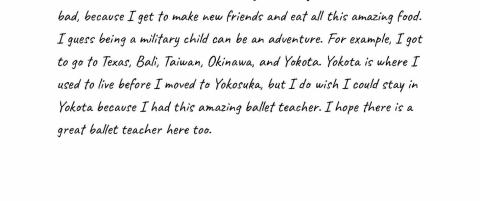 bad, because I get to make new friends and eat all this amazing food.
I guess being a military child can be an adventure. For example, I got
to go to Texas, Bali, Taiwan, Okinawa, and Yokota. Yokota is where I
used to live before I moved to Yokosuka, but I do wish I could stay in
Yokota because I had this amazing ballet teacher. I hope there is a
great ballet teacher here too.